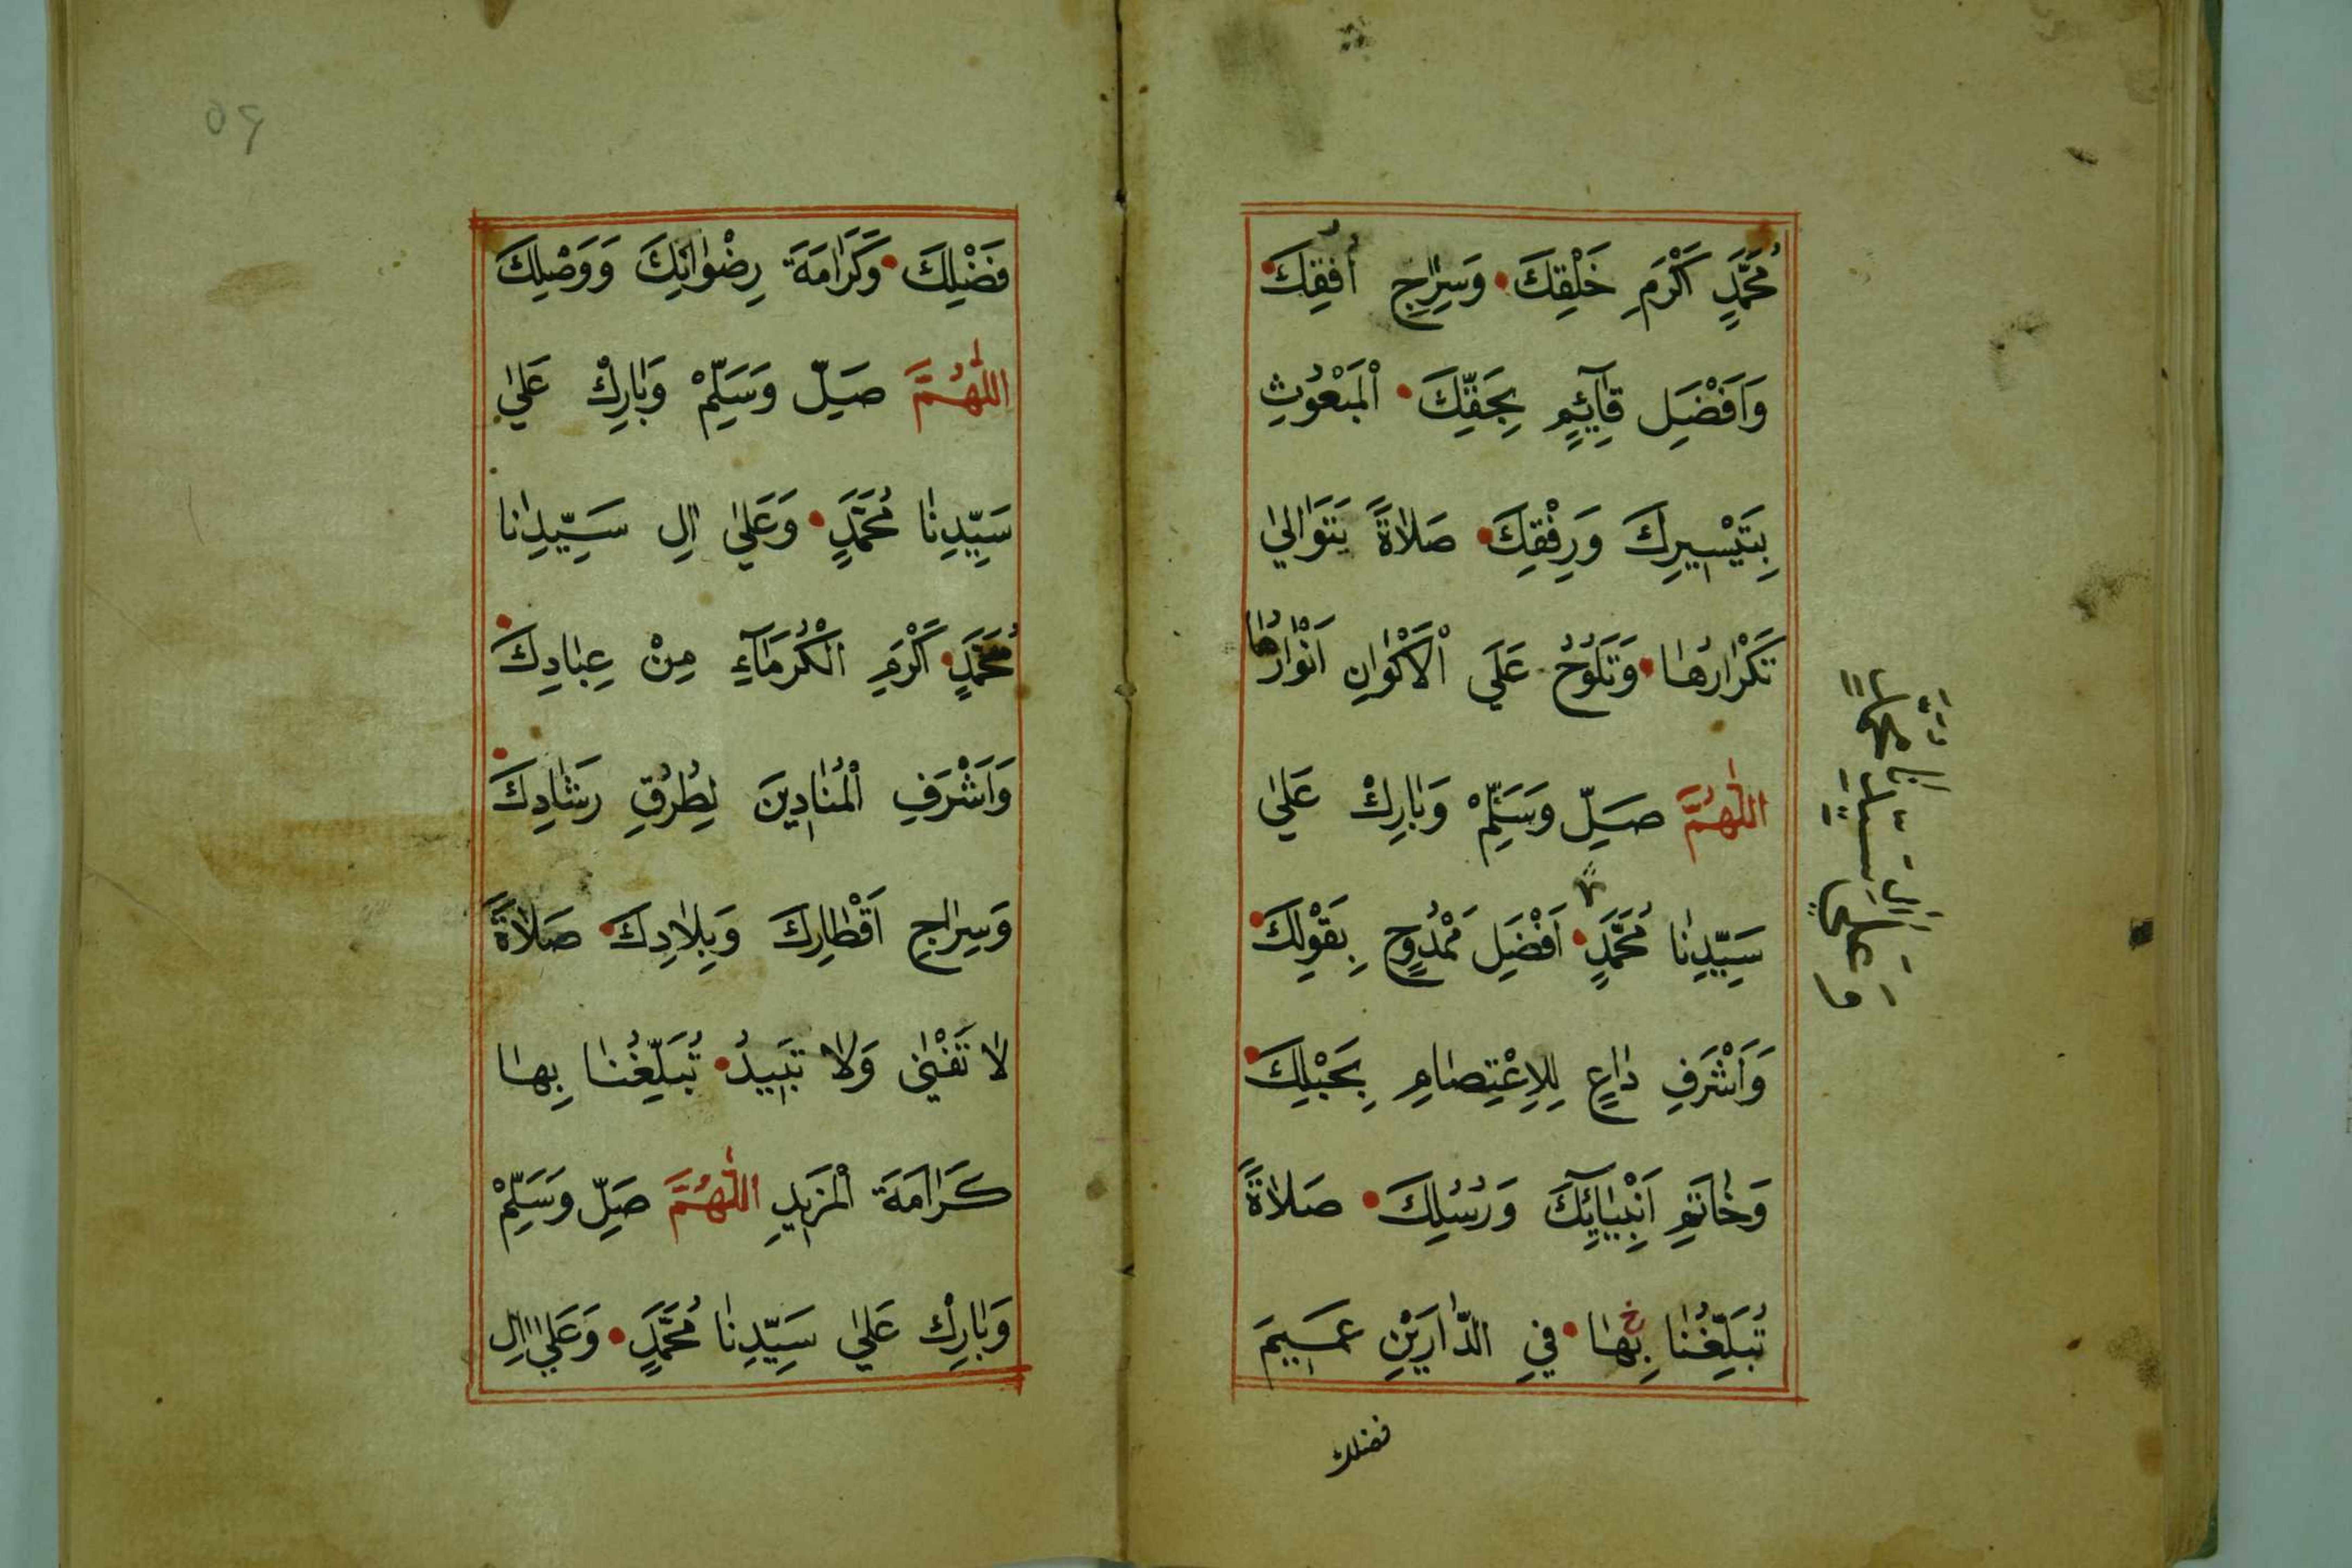 مُحَمَّدٍ اَكْرَمِ خَلْقِكَ وَسِرَاجِ اُفُقِكَ
وَاَفْضَلِ قَآئِمٍ بِحَقِّكَ الْمَبْعُوثِ
بِتَيْسِيرِكَ وَرِفْقِكَ صَلَاةً يَتَوَالىٰ
تَكْرَارُهَا وَتَلُوحُ عَلَى الْاَكْوَانِ اَنْوَارُهَا
اللّٰهُمَّ صَلِّ وَسَلِّمْ وَبَارِكْ عَلىٰ
سَيِّدِنَا مُحَمَّدٍ اَفْضَلِ مَمْدُوحٍ بِقَوْلِكَ
وَاَشْرَفِ دَاعٍ لِلِاعْتِصَامِ بِحَبْلِكَ
وَخَاتَمِ اَنْبِيَائِكَ وَرُسُلِكَ صَلَاةً
تُبَلِّغُنَا بِهَا فِي الدَّارَيْنِ عَمِيمَ
فضلك
وَعَلىٰ اٰلِ سَيِّدِنَا مُحَمَّدٍ
فَضْلِكَ وَكَرَامَةَ رِضْوَانِكَ وَوَصْلِكَ
اللّٰهُمَّ صَلِّ وَسَلِّمْ وَبَارِكْ عَلىٰ
سَيِّدِنَا مُحَمَّدٍ وَعَلىٰ اٰلِ سَيِّدِنَا
مُحَمَّدٍ اَكْرَمِ الْكُرَمَآءِ مِنْ عِبَادِكَ
وَاَشْرَفِ الْمُنَادِينَ لِطُرُقِ رَشَادِكَ
وَسِرَاجِ اَقْطَارِكَ وَبِلَادِكَ صَلَاةً
لَا تَفْنىٰ وَلَا تَبِيدُ تُبَلِّغُنَا بِهَا
كَرَامَةَ الْمَزِيدِ اللّٰهُمَّ صَلِّ وَسَلِّمْ
وَبَارِكْ عَلىٰ سَيِّدِنَا مُحَمَّدٍ وَعَلىٰ اٰلِ